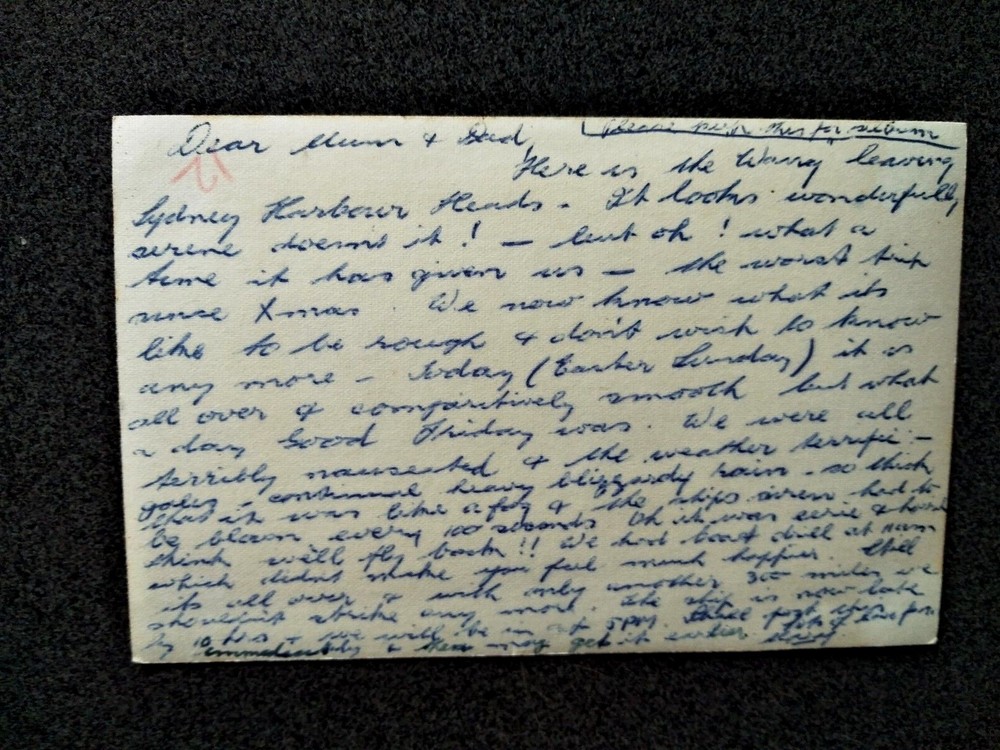 Please keep this for album
Dear Mum & Dad,
Here is the Wang leaving
Sydney Harbour Heads. It looks wonderfully
serene doesnt it! — but oh! what a
time it has given us — the worst trip
since Xmas. We now know what its
like to be rough & don't wish to know
any more — Today (Easter Sunday) it is
all over & comparitively smooth but what
a day Good Friday was. We were all
terribly nauseated & the weather terrific —
gales — continual heavy blizzardy rain — so thick
that it was like a fog & the ships siren had to
be blown every 100 seconds Oh it was eerie &
think we'll fly back!! We had boat drill at 11am
which didnt make you feel much happier. Still
its all over & with only another 300 miles we
shouldn't strike any more. The ship is now late
by 10 hrs & we will be in at 5PM. Shall post this
immediately & then may get it earlier. Lots of love from